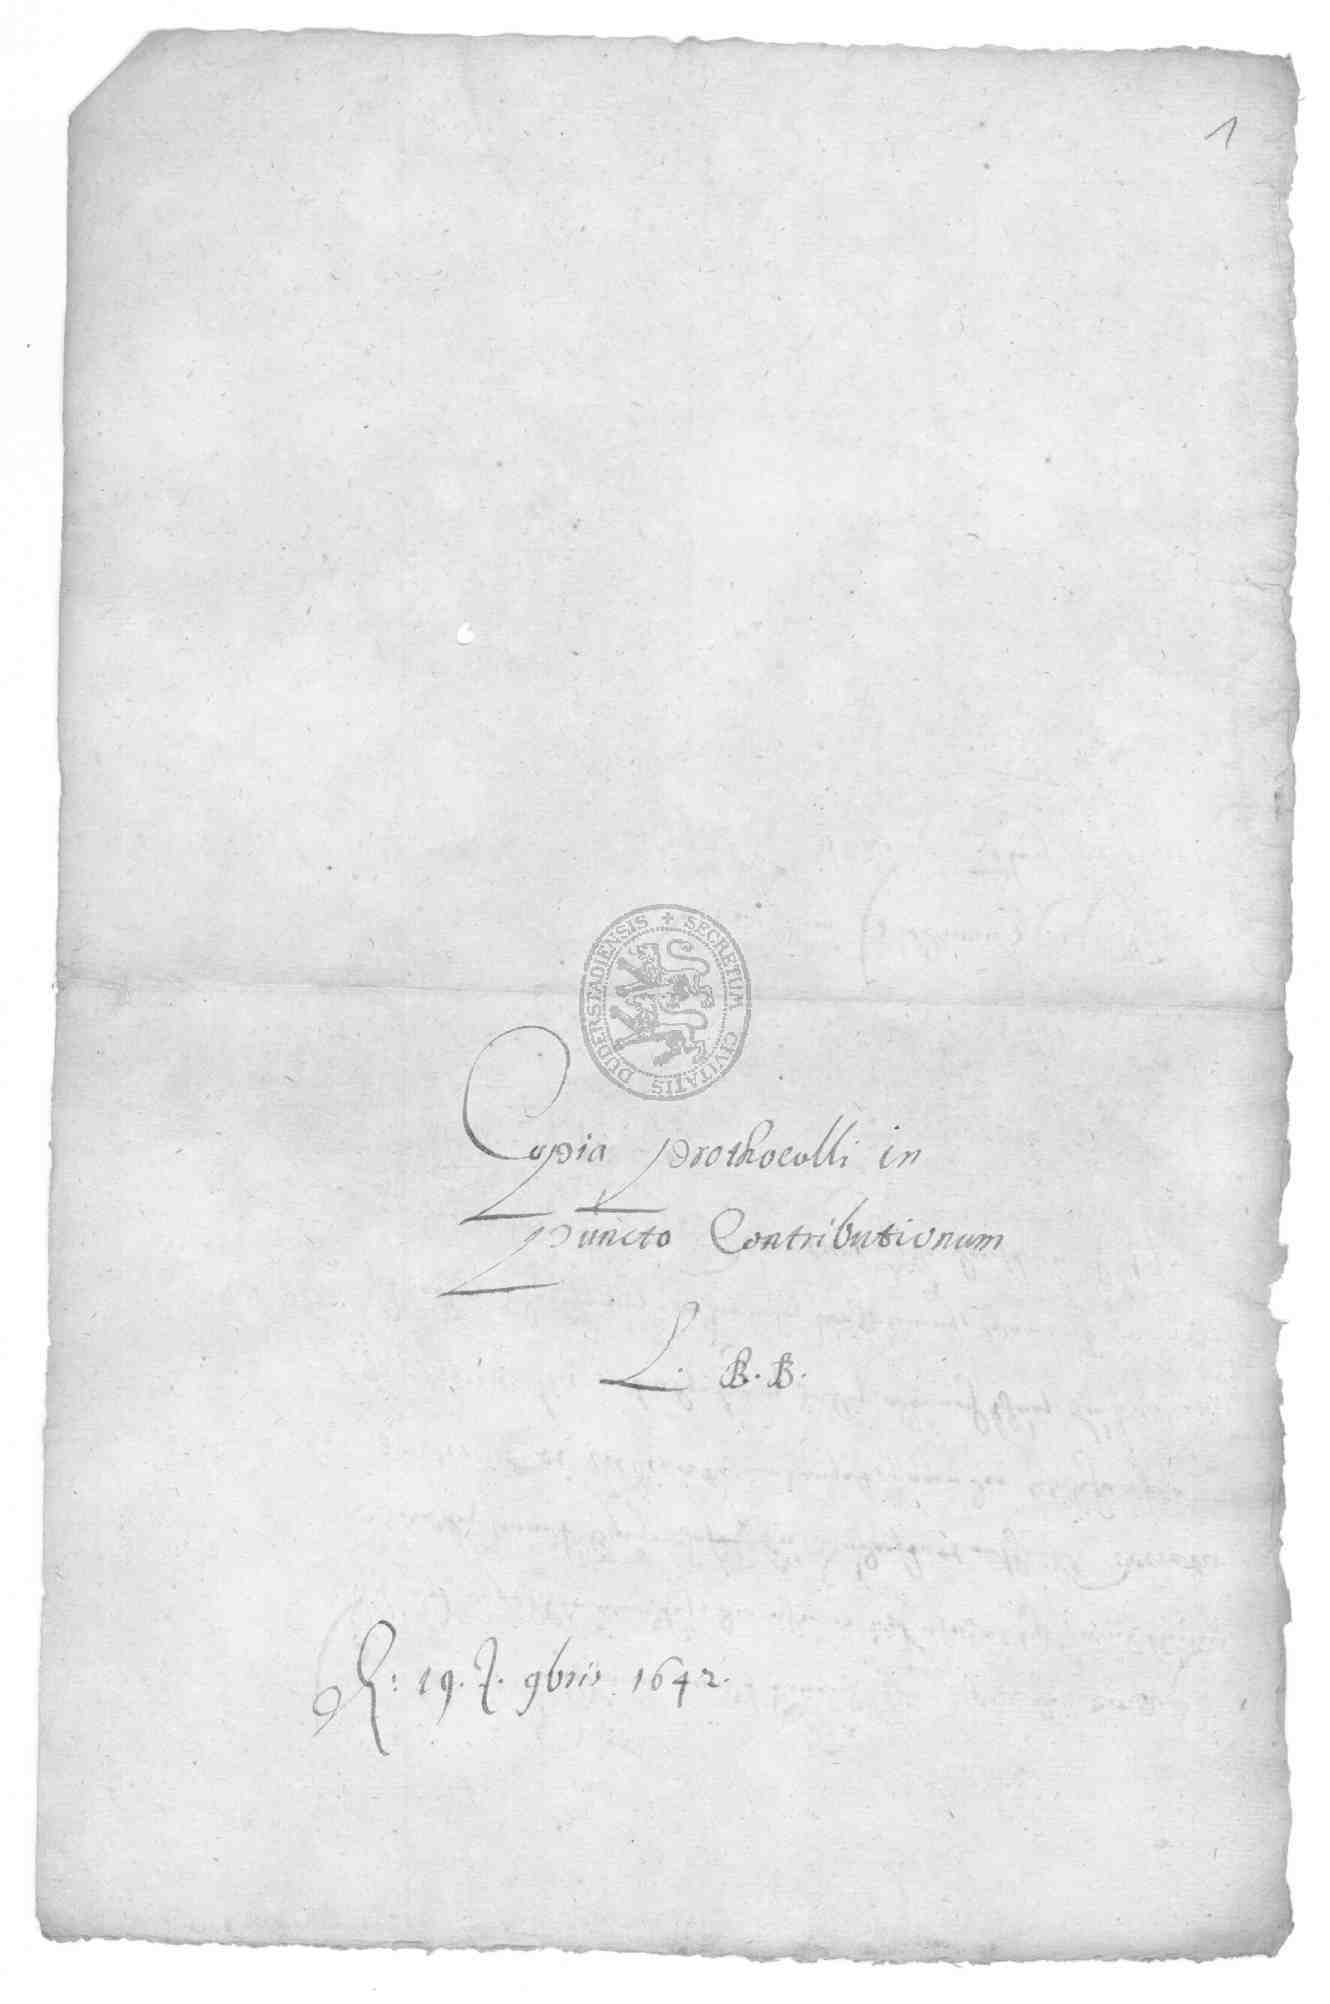 1
SECRETUM CIVITATIS DUDERSTADIENSIS
Copia Prothocolli in
Puncto Contributionum
L. B. B.
R: 19. J. 9bris 1642.